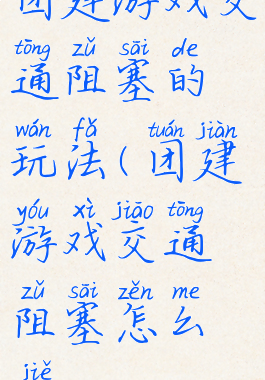 团建游戏交
tōng zǔ sāi de
通阻塞的
wán fǎ tuán jiàn
玩法(团建
yóu xì jiāo tōng
游戏交通
zǔ sāi zěn me
阻塞怎么
jiě